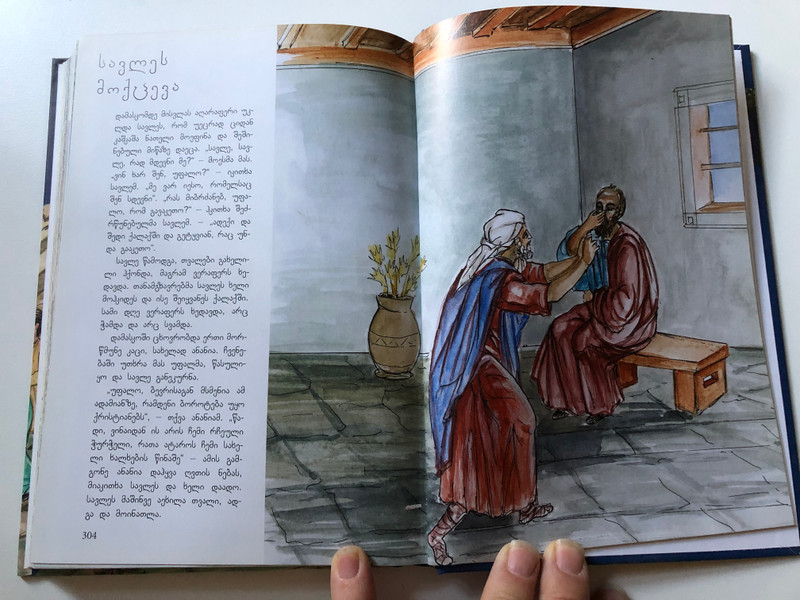 სავლეს
მოქცევა
დამასკომდე მისვლას აღარაფერი უკ-
ლდა სავლეს, რომ უეცრად ციდან
კაშკაშა ნათელი მოეფინა და შეში-
ნებული მიწაზე დაეცა. „სავლე, სავ-
ლე, რად მდევნი მე?“ — მოესმა მას.
„ვინ ხარ შენ, უფალო?“ — იკითხა
სავლემ. „მე ვარ იესო, რომელსაც
შენ სდევნი“. „რას მიბრძანებ, უფა-
ლო, რომ გავაკეთო?“ — ჰკითხა შეძ-
რწუნებულმა სავლემ. — „ადექი და
შედი ქალაქში და გეტყვიან, რაც უნ-
და გააკეთო“.
სავლე წამოდგა, თვალები გახელი-
ლი ჰქონდა, მაგრამ ვერაფერს ხე-
დავდა. თანამგზავრებმა სავლეს ხელი
მოჰკიდეს და ისე შეიყვანეს ქალაქში.
სამი დღე ვერაფერს ხედავდა, არც
ჭამდა და არც სვამდა.
დამასკოში ცხოვრობდა ერთი მორ-
წმუნე კაცი, სახელად ანანია. ჩვენე-
ბაში უთხრა მას უფალმა, წასული-
ყო და სავლე განეკურნა.
„უფალო, ბევრისაგან მსმენია ამ
ადამიანზე, რამდენი ბოროტება უყო
ქრისტიანებს“, — თქვა ანანიამ. „წა-
დი, ვინაიდან ის არის ჩემი რჩეული
ჭურჭელი, რათა ატაროს ჩემი სახე-
ლი ხალხების წინაშე“ — ამის გამ-
გონე ანანია დაჰყვა ღვთის ნებას,
მიაკითხა სავლეს და ხელი დაადო.
სავლეს მაშინვე აეხილა თვალი, ად-
გა და მოინათლა.
304